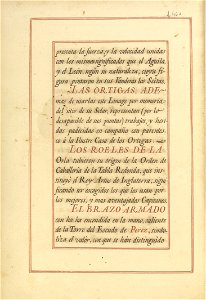 presenta la fuerza, y la velocidad unidas
con las mismas significadas que el Aguila
y el Leon, segun su naturaleza; cuyas fi-
guras pintaron en sus Vanderas los Scitas.
LAS ORTIGAS, ADE-
mas de usarlas este Linage por memoria
del sitio de su Solar, representan (por lo
desapacible de sus puntas) trabajos, y heri-
das padecidas en compañia con parentes-
co à la Ilustre Casa de los Ortegas
LOS ROBLES DE LA
Orla tubieron su origen de la Orden de
Caballeria de la Tabla Redonda, que ins-
tituyó el Rey Artus de Inglaterra, signi-
ficando ser escogidos los que los usan por
los mejores, y mas aventajados Capitanes.
EL BRAZO ARMADO
con la encendida en la mano, saliente
de la Torre del Escudo de Perez, simbo-
liza el valor, con que se han distinguido